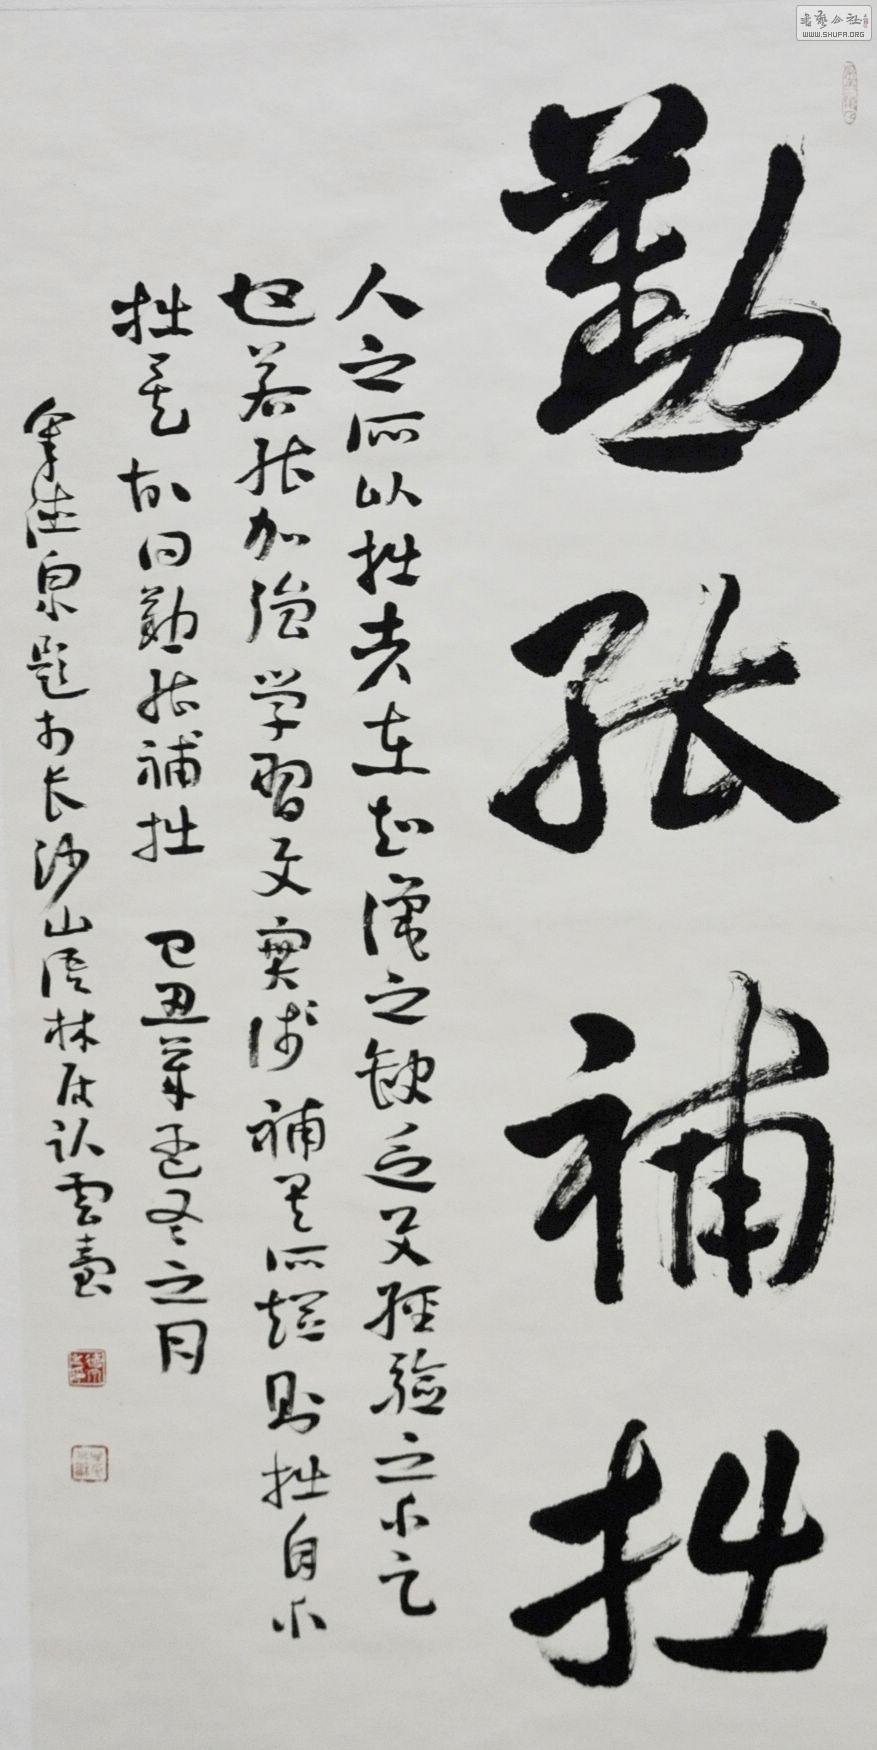 勤能補拙
人之所以拙者在知識之缺乏及經驗之不足
也若能加强学習文實踐補其所短則拙自小
拙矣故曰勤能補拙 己丑年孟冬之月
泉題於长沙山林居卧雲
书艺公社
WWW.SHUFA.ORG